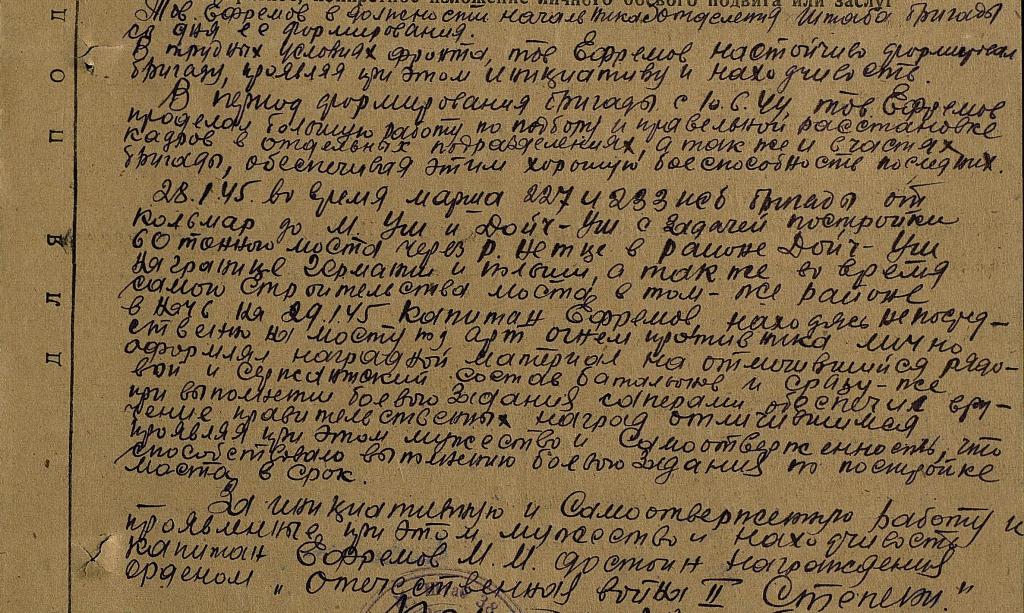 конкретное изложение личного боевого подвига или заслуг
Тов Ефремов в должности начальника отделения штаба бригады
со дня её формирования.
В трудных условиях фронта, тов Ефремов настойчиво формировал
бригаду, проявляя при этом инициативу и находчивость.
В период формирования бригады с 10.6.44 тов. Ефремов
проделал большую работу по подбору и правельной расстановке
кадров в отдельных подразделениях, а так же и в частях
бригады, обеспечивая этим хорошую боеспособность последних.
28.1.45. во время марша 227 и 233 исб бригады от
Кольмар до М. Уш и Дойч-Уш с задачей постройки
60 тонного моста через р. Нетце в районе Дойч-Уш
на границе Германии и Польши, а так же во время
самого строительства моста в том-же районе
в ночь на 29.1.45 капитан Ефремов, находясь непосред-
ственно на мосту под арт огнем противника лично
оформлял наградной материал на отличившийся рядо-
вой и сержантский состав батальонов и сразу-же
при выполнении боевого задания саперами обеспечил вру-
чение правительственных наград отличившимся
проявляя при этом мужество и самоотверженность, что
способствовало выполнению боевого задания по постройке
моста в срок.
За инициативную и самоотверженную работу и
проявленные при этом мужество и находчивость
капитан Ефремов М.М. достоин награждения
орденом „Отечественная война II Степени"
ДЛЯ ПОД